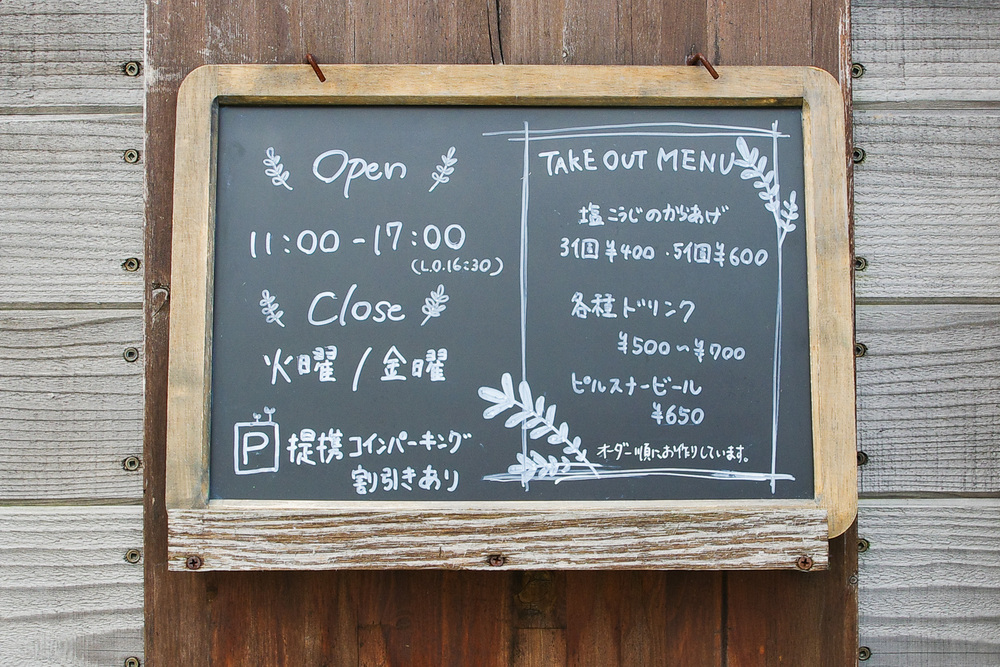 Open
11:00-17:00
(L.O.16:30)
Close
火曜/金曜
P 提携コインパーキング
割引きあり
TAKE OUT MENU
塩こうじのからあげ
3個¥400・5個¥600
各種ドリンク
¥500~¥700
ピルスナービール
¥650
オーダー順にお作りしています。